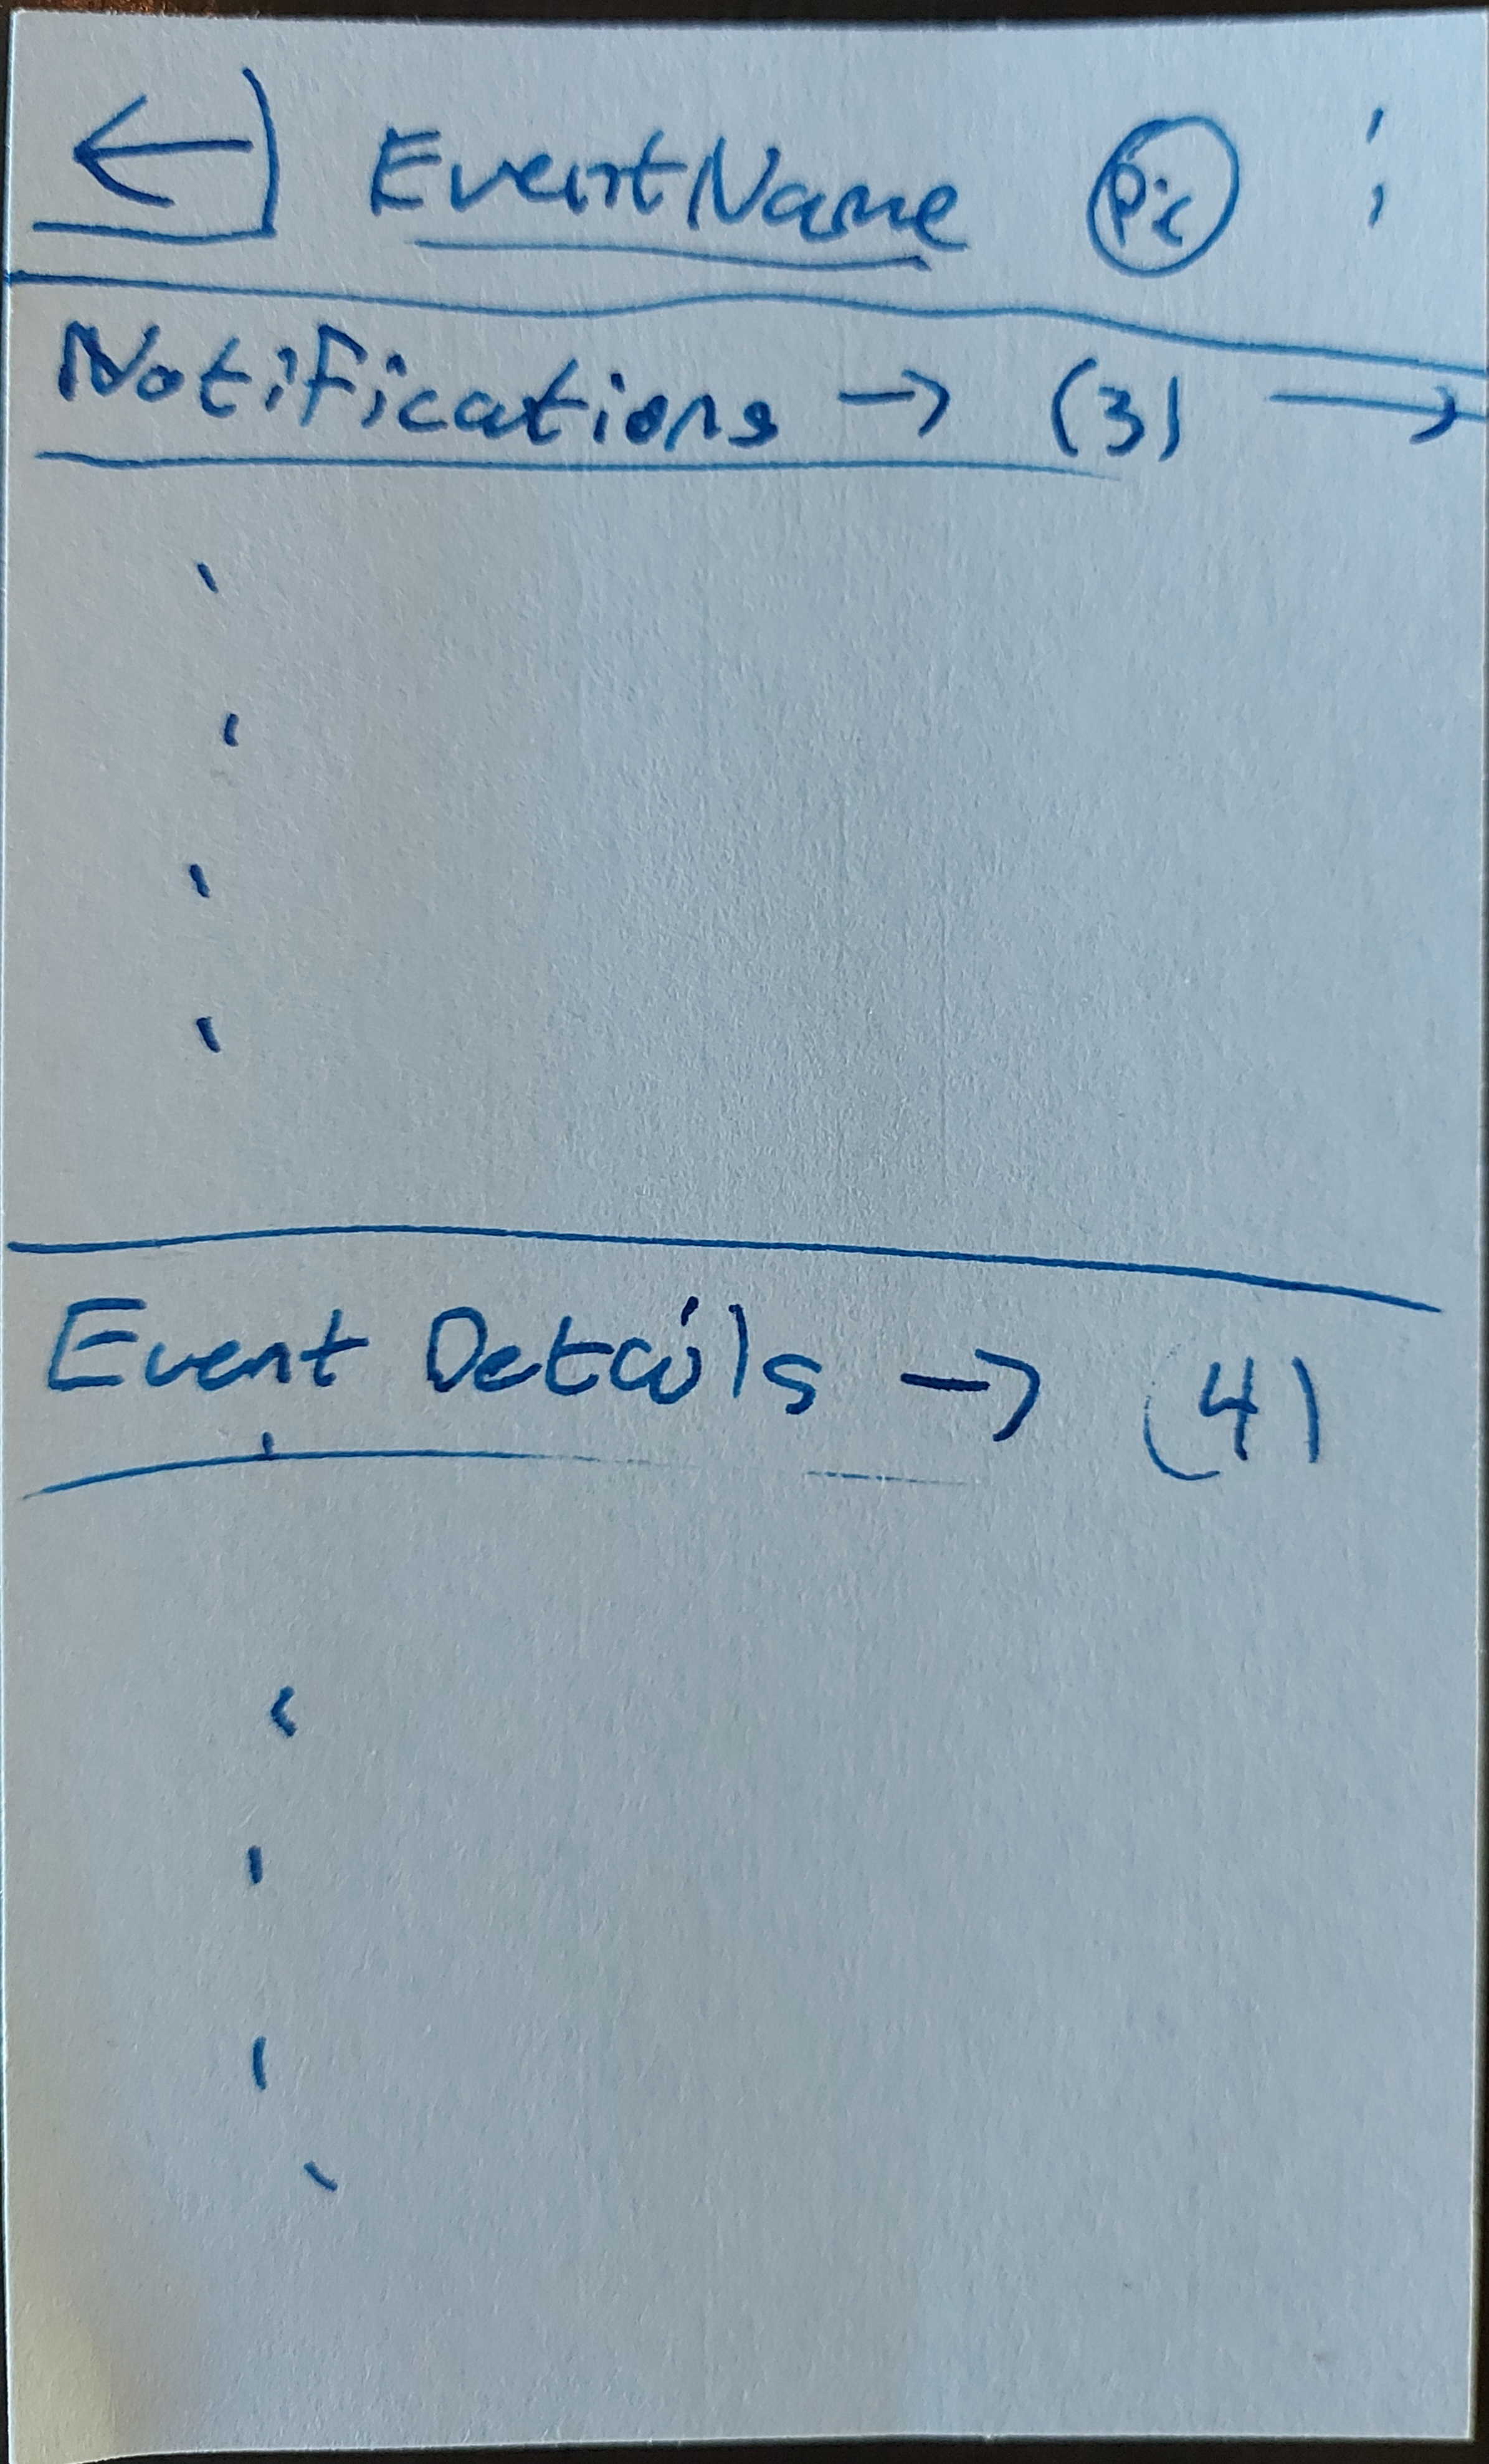 ← EventName Pic :
Notifications → (3) →
Event Details → (4)